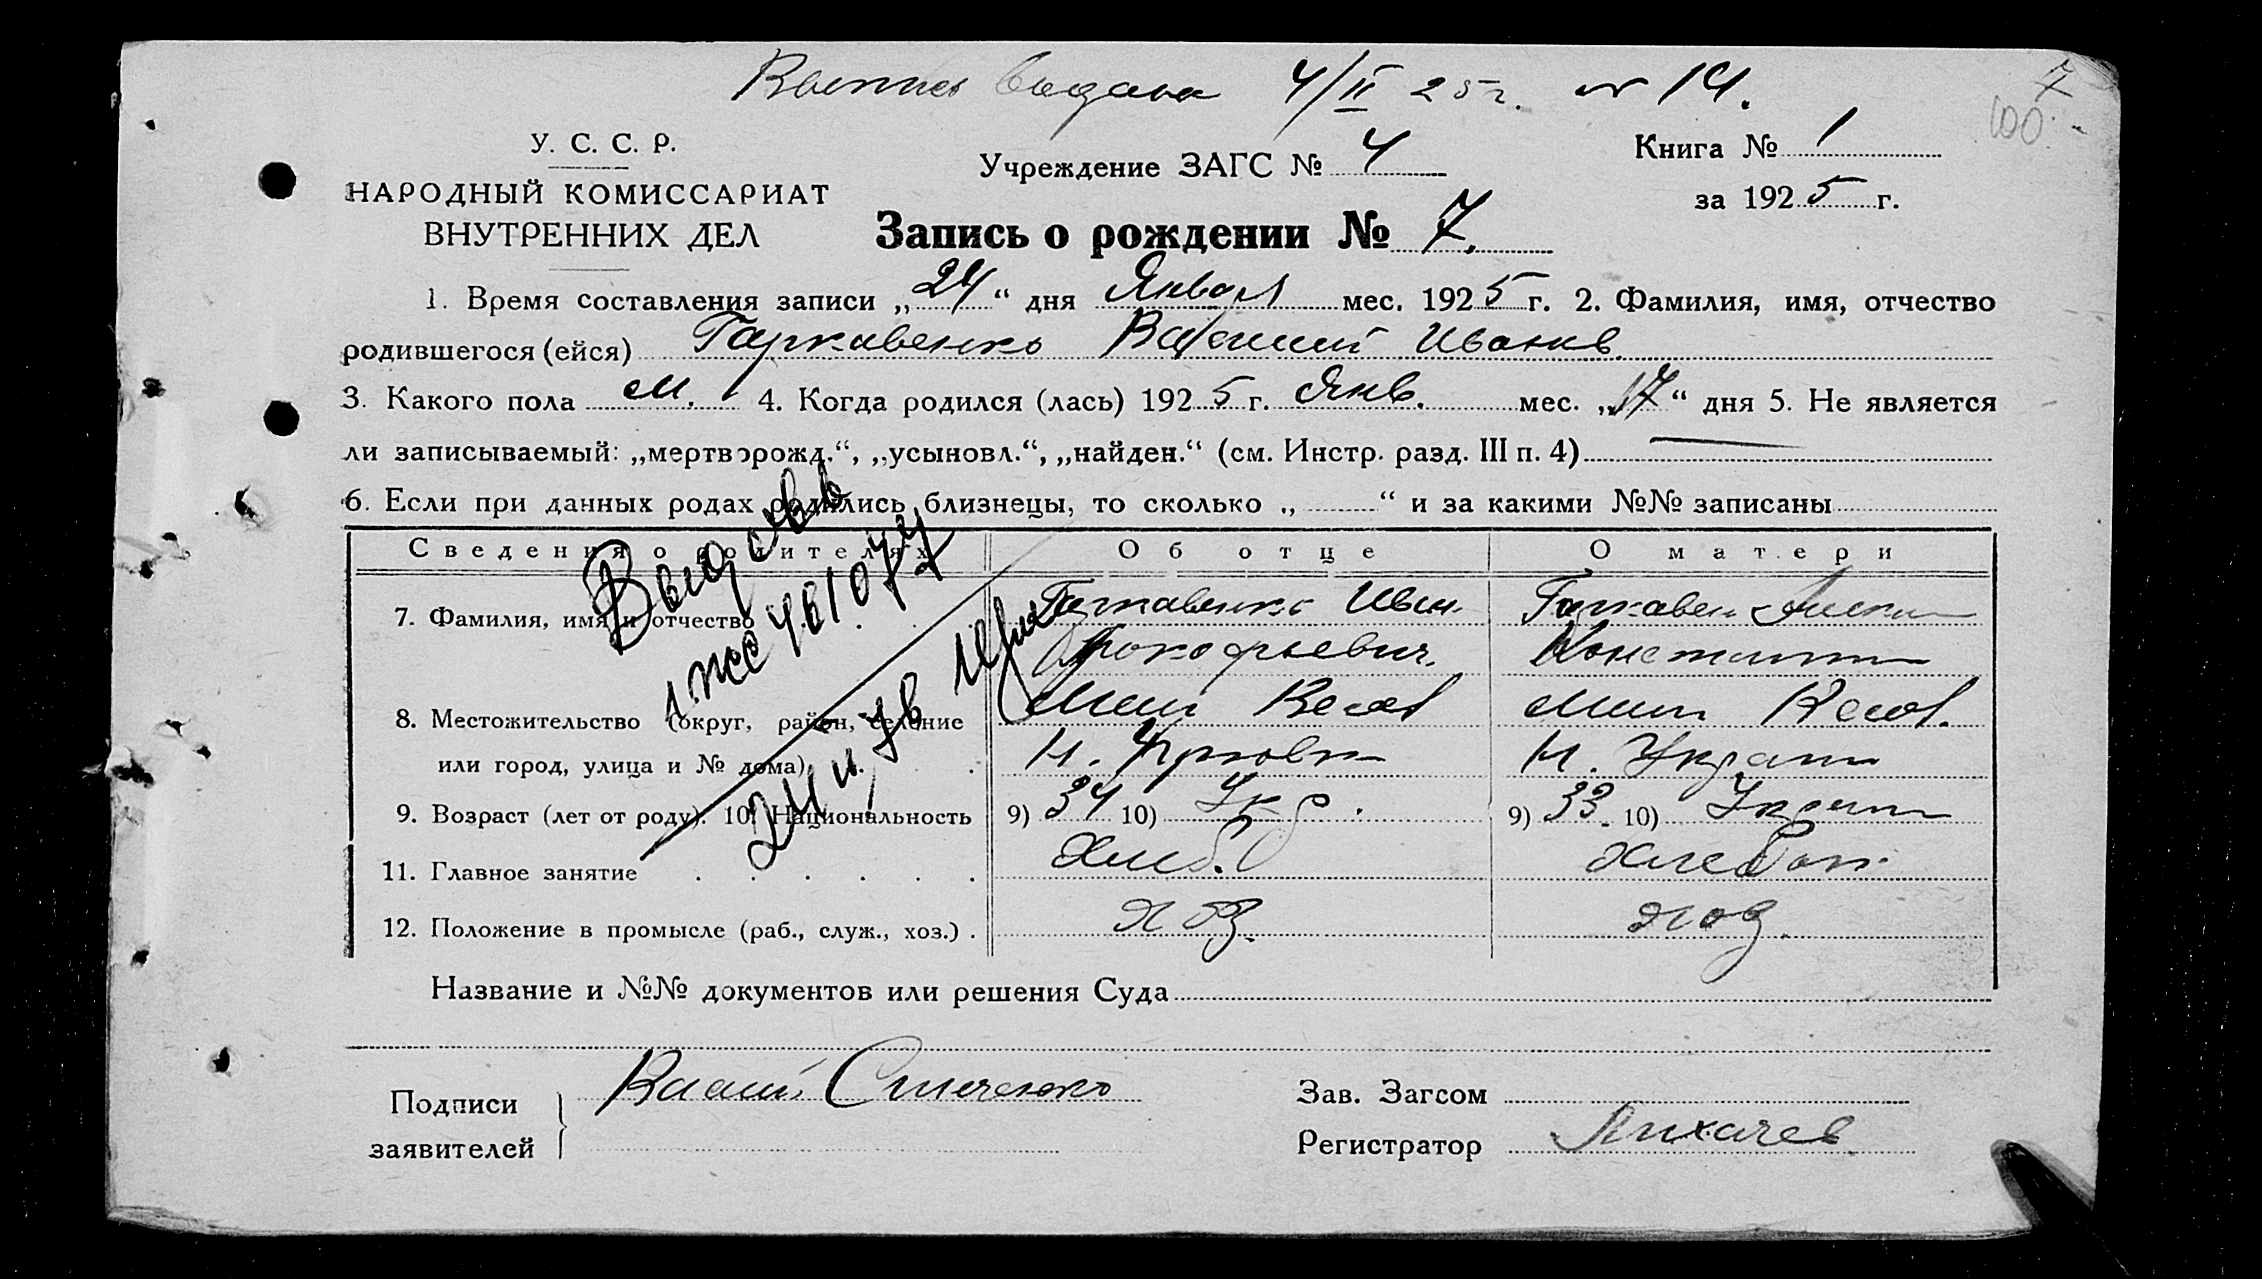 Выпись выдана 4/II 25 г. № 14.
7
100.
У. С. С. Р.
НАРОДНЫЙ КОМИССАРИАТ
ВНУТРЕННИХ ДЕЛ
Учреждение ЗАГС № 4
Книга № 1
за 1925 г.
Запись о рождении № 7.
1. Время составления записи „24“ дня Января мес. 1925 г. 2. Фамилия, имя, отчество
родившегося (ейся) Гаркавенко Иванов.
3. Какого пола м. 4. Когда родился (лась) 1925 г. Янв. мес. „17“ дня 5. Не является
ли записываемый: „мертворожд.“, „усыновл.“, „найден.“ (см. Инстр. разд. III п. 4)
6. Если при данных родах родились близнецы, то сколько „ “ и за какими №№ записаны
Сведения о родителях Об отце О матери
7. Фамилия, имя и отчество Гаркавенко Иван Гаркавен
Прокофьевич. Константин
8. Местожительство (округ, район, селение
или город, улица и № дома)
9. Возраст (лет от роду). 10. Национальность 9) 34 10) Укр. 9) 33. 10) Украин
11. Главное занятие Хлеб. Хлебоп.
12. Положение в промысле (раб., служ., хоз.) хоз. хоз.
Название и №№ документов или решения Суда
Подписи
заявителей
Зав. Загсом
Регистратор Лихачев